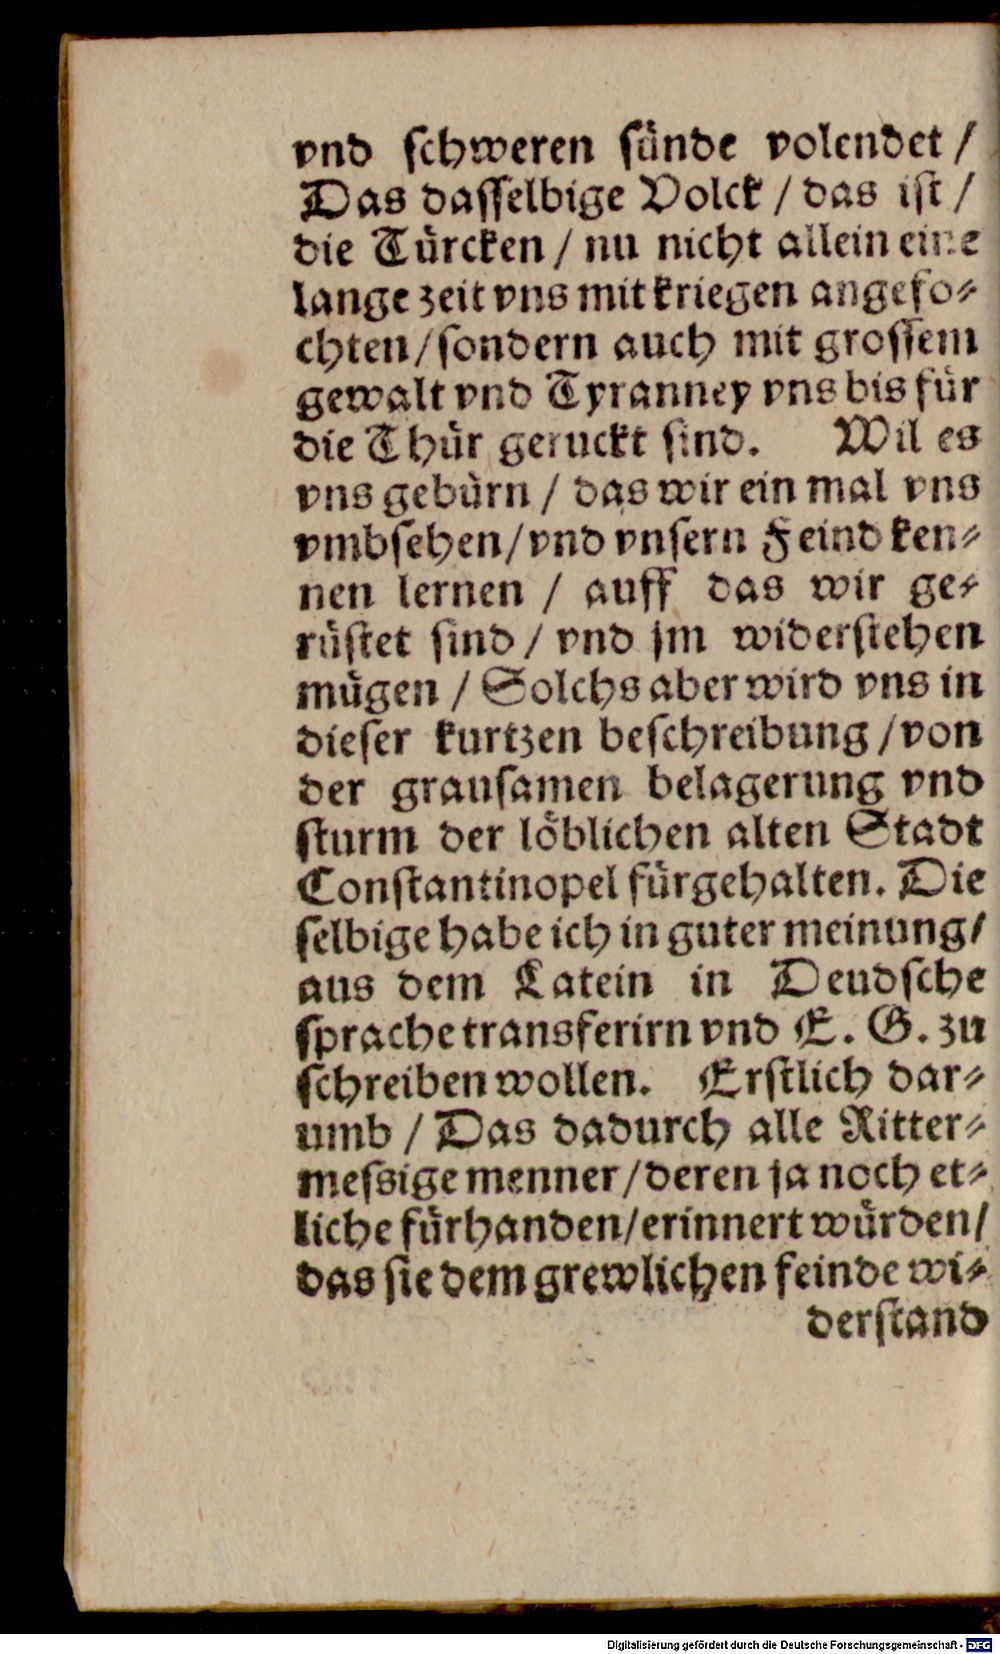 vnd schweren sünde volendet /
Das dasselbige Volck / das ist /
die Türcken / nu nicht allein eine
lange zeit vns mit kriegen angefo⸗
chten / sondern auch mit grossem
gewalt vnd Tyranney vns bis für
die Thür geruckt sind. Wil es
vns gebürn / das wir ein mal vns
vmbsehen / vnd vnsern Feind ken⸗
nen lernen / auff das wir ge⸗
rüstet sind / vnd jm widerstehen
mügen / Solchs aber wird vns in
dieser kurtzen beschreibung / von
der grausamen belagerung vnd
sturm der löblichen alten Stadt
Constantinopel fürgehalten. Die
selbige habe ich in guter meinung /
aus dem Latein in Deudsche
sprache transferirn vnd E. G. zu
schreiben wollen. Erstlich dar⸗
umb / Das dadurch alle Ritter⸗
messige menner / deren ja noch et⸗
liche fürhanden / erinnert würden /
das sie dem grewlichen feinde wi⸗
derstand
Digitalisierung gefördert durch die Deutsche Forschungsgemeinschaft - DFG